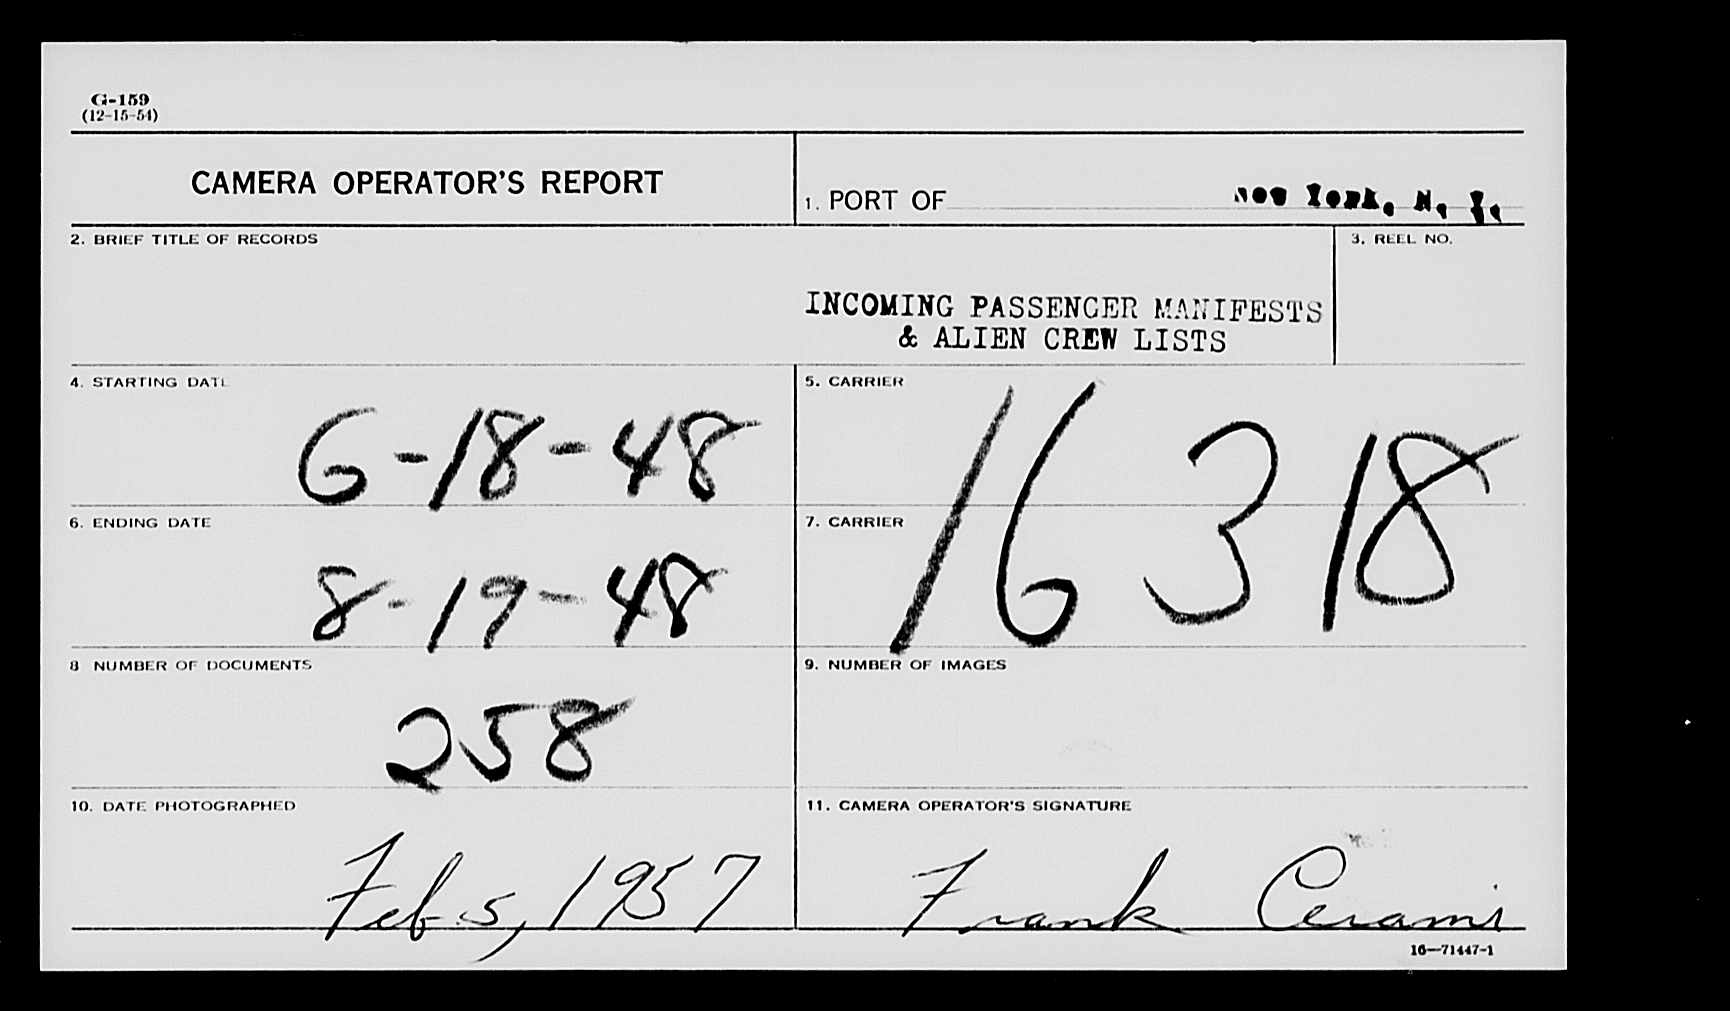 G-159
(12-15-54)
CAMERA OPERATOR'S REPORT
1. PORT OF New York, N. Y.
2. BRIEF TITLE OF RECORDS
3. REEL NO.
INCOMING PASSENGER MANIFESTS
& ALIEN CREW LISTS
4. STARTING DATE
6-18-48
5. CARRIER
16318
6. ENDING DATE
8-19-48
7. CARRIER
8 NUMBER OF DOCUMENTS
258
9. NUMBER OF IMAGES
10. DATE PHOTOGRAPHED
Feb 5, 1957
11. CAMERA OPERATOR'S SIGNATURE
Frank Cerami
16—71447-1